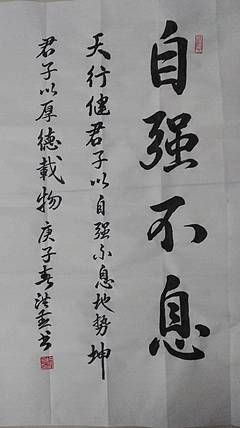 自强不息
天行健君子以自强不息地势坤
君子以厚德載物 庚子春洪